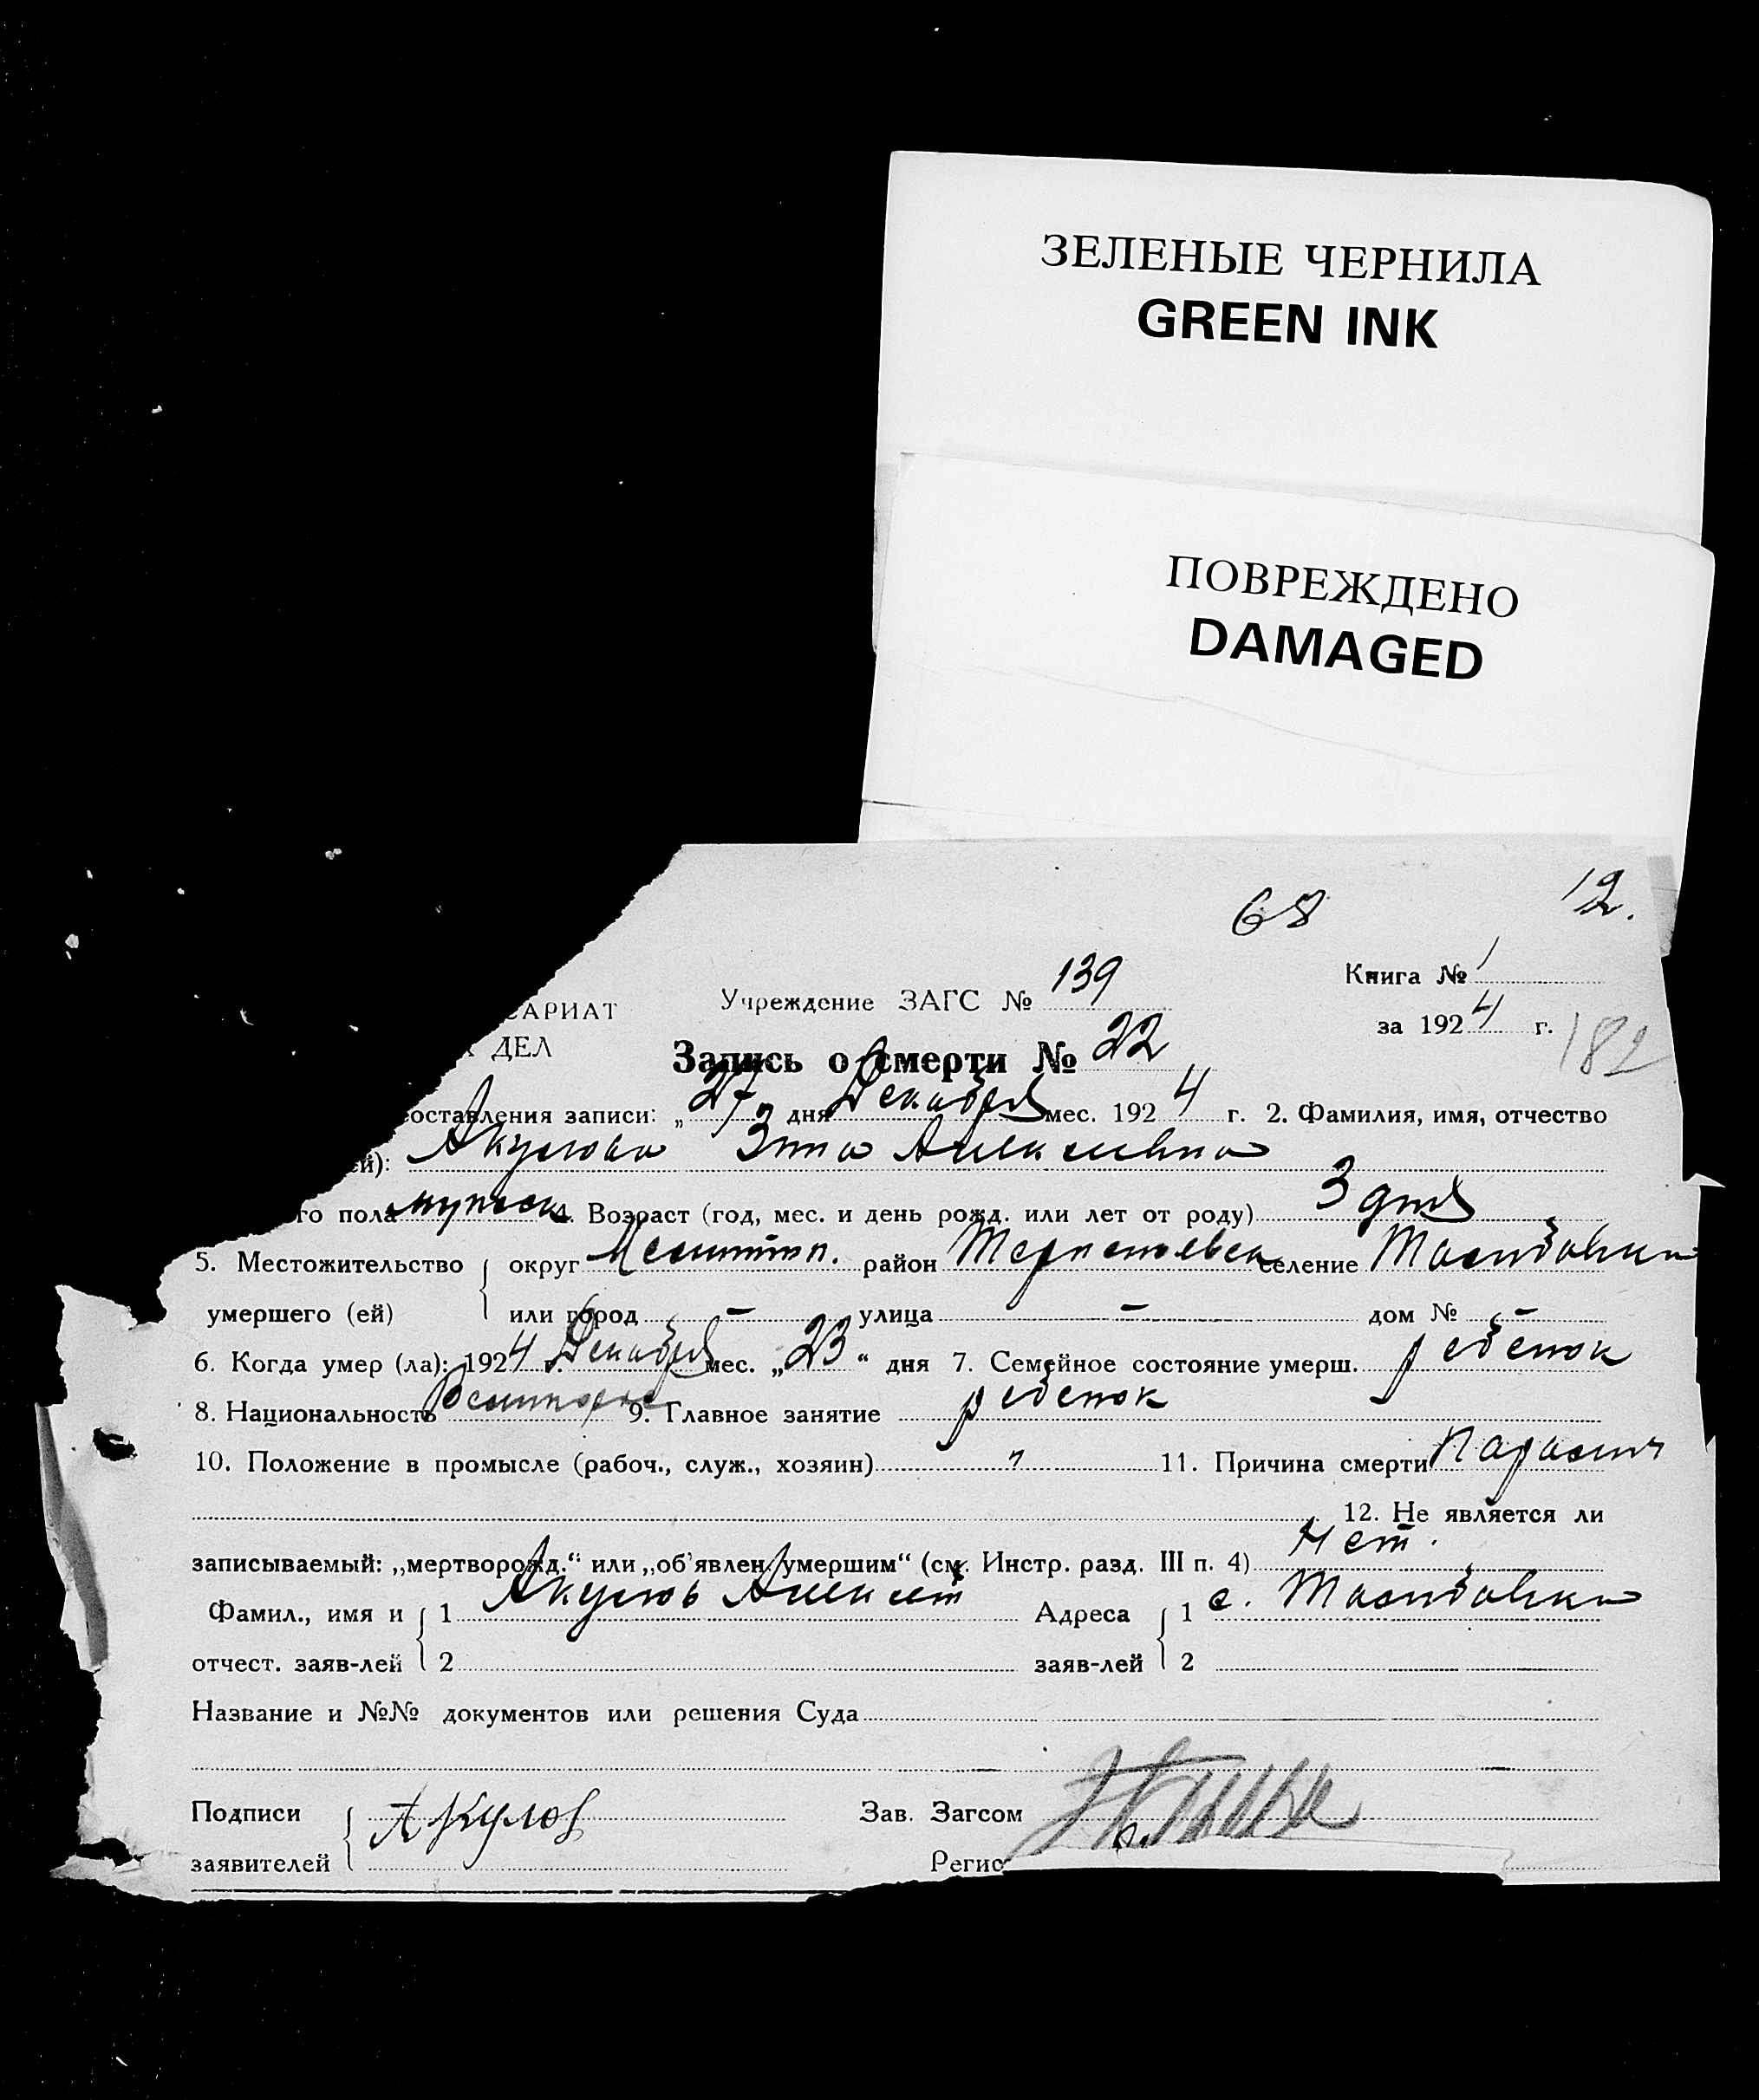 ЗЕЛЕНЫЕ ЧЕРНИЛА
GREEN INK
ПОВРЕЖДЕНО
DAMAGED
68 12.
Книга № 1
САРИАТ Учреждение ЗАГС № 139
за 1924 г. 182
Х ДЕЛ Запись о смерти № 22
составления записи: „27" дня Декабря мес. 1924 г. 2. Фамилия, имя, отчество
ей): Акулова
го пола 4. Возраст (год, мес. и день рожд. или лет от роду) 3 дня
5. Местожительство округ район селение
умершего (ей) или город — улица — дом № —
6. Когда умер (ла): 1924 г. Декабря мес. „23“ дня 7. Семейное состояние умерш. ребенок
8. Национальность 9. Главное занятие ребенок
10. Положение в промысле (рабоч., служ., хозяин) " 11. Причина смерти
12. Не является ли
записываемый: „мертворожд.“ или „об'явлен. умершим“ (см. Инстр. разд. III п. 4) Нет.
Фамил., имя и 1 Акулов Алексей Адреса 1 с.
отчест. заяв-лей 2 заяв-лей 2
Название и №№ документов или решения Суда
Подписи Акулов Зав. Загсом
заявителей Регис